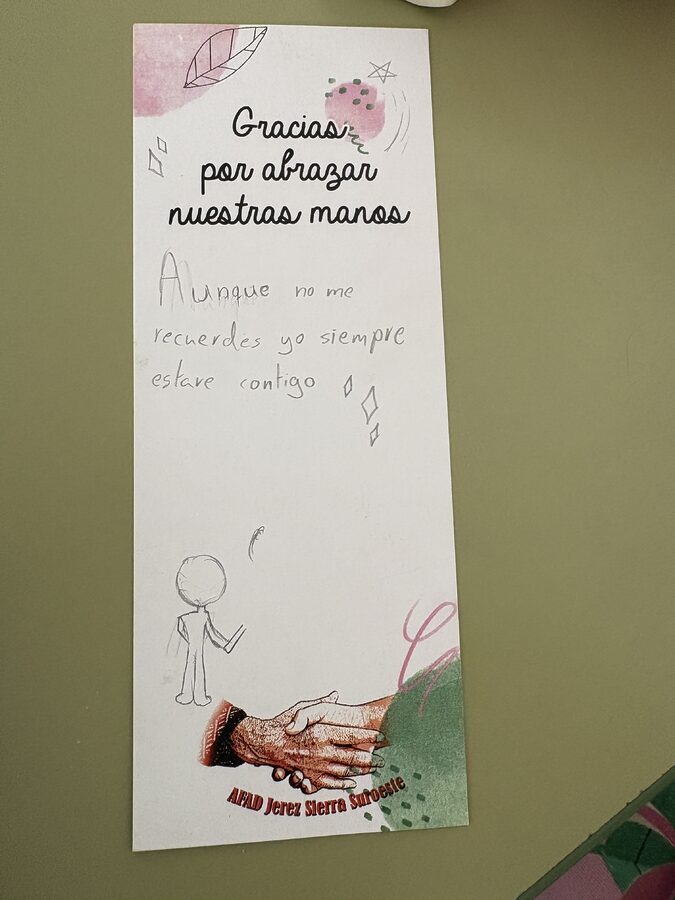 Gracias
por abrazar
nuestras manos
Aunque no me
recuerdes yo siempre
estare contigo
AFAD Jerez Sierra Suroeste